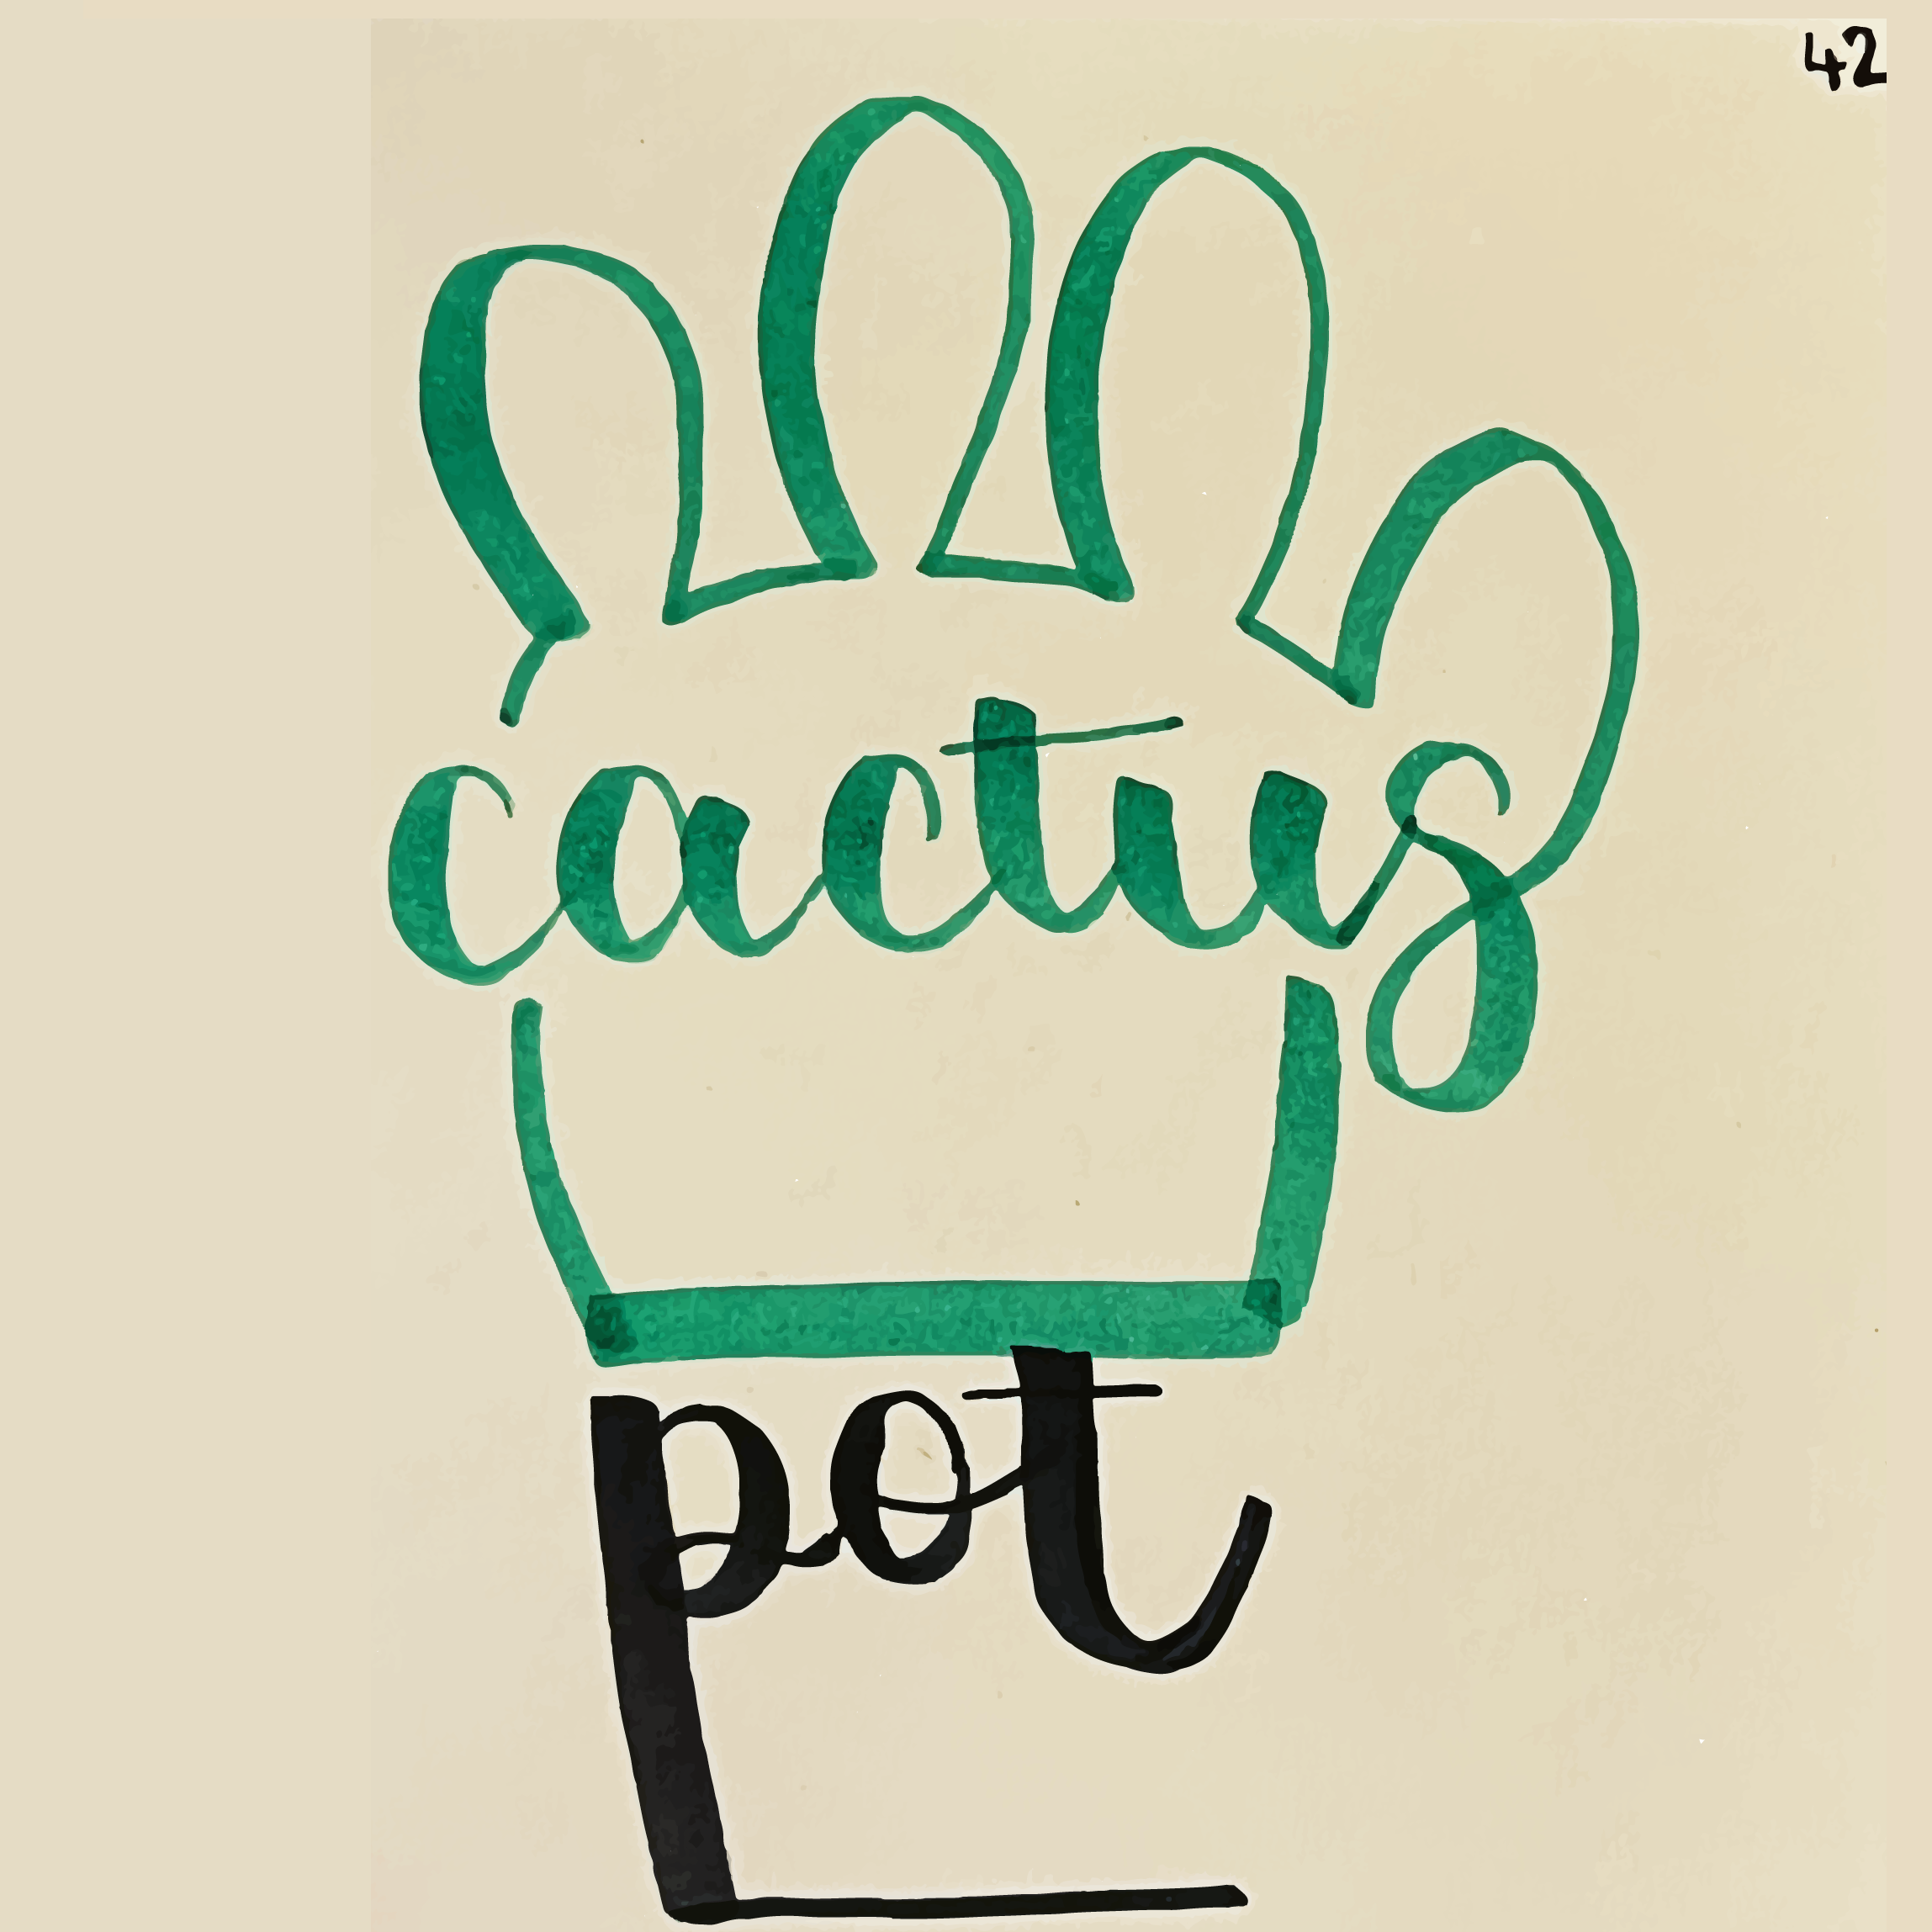 42
cactus
pot